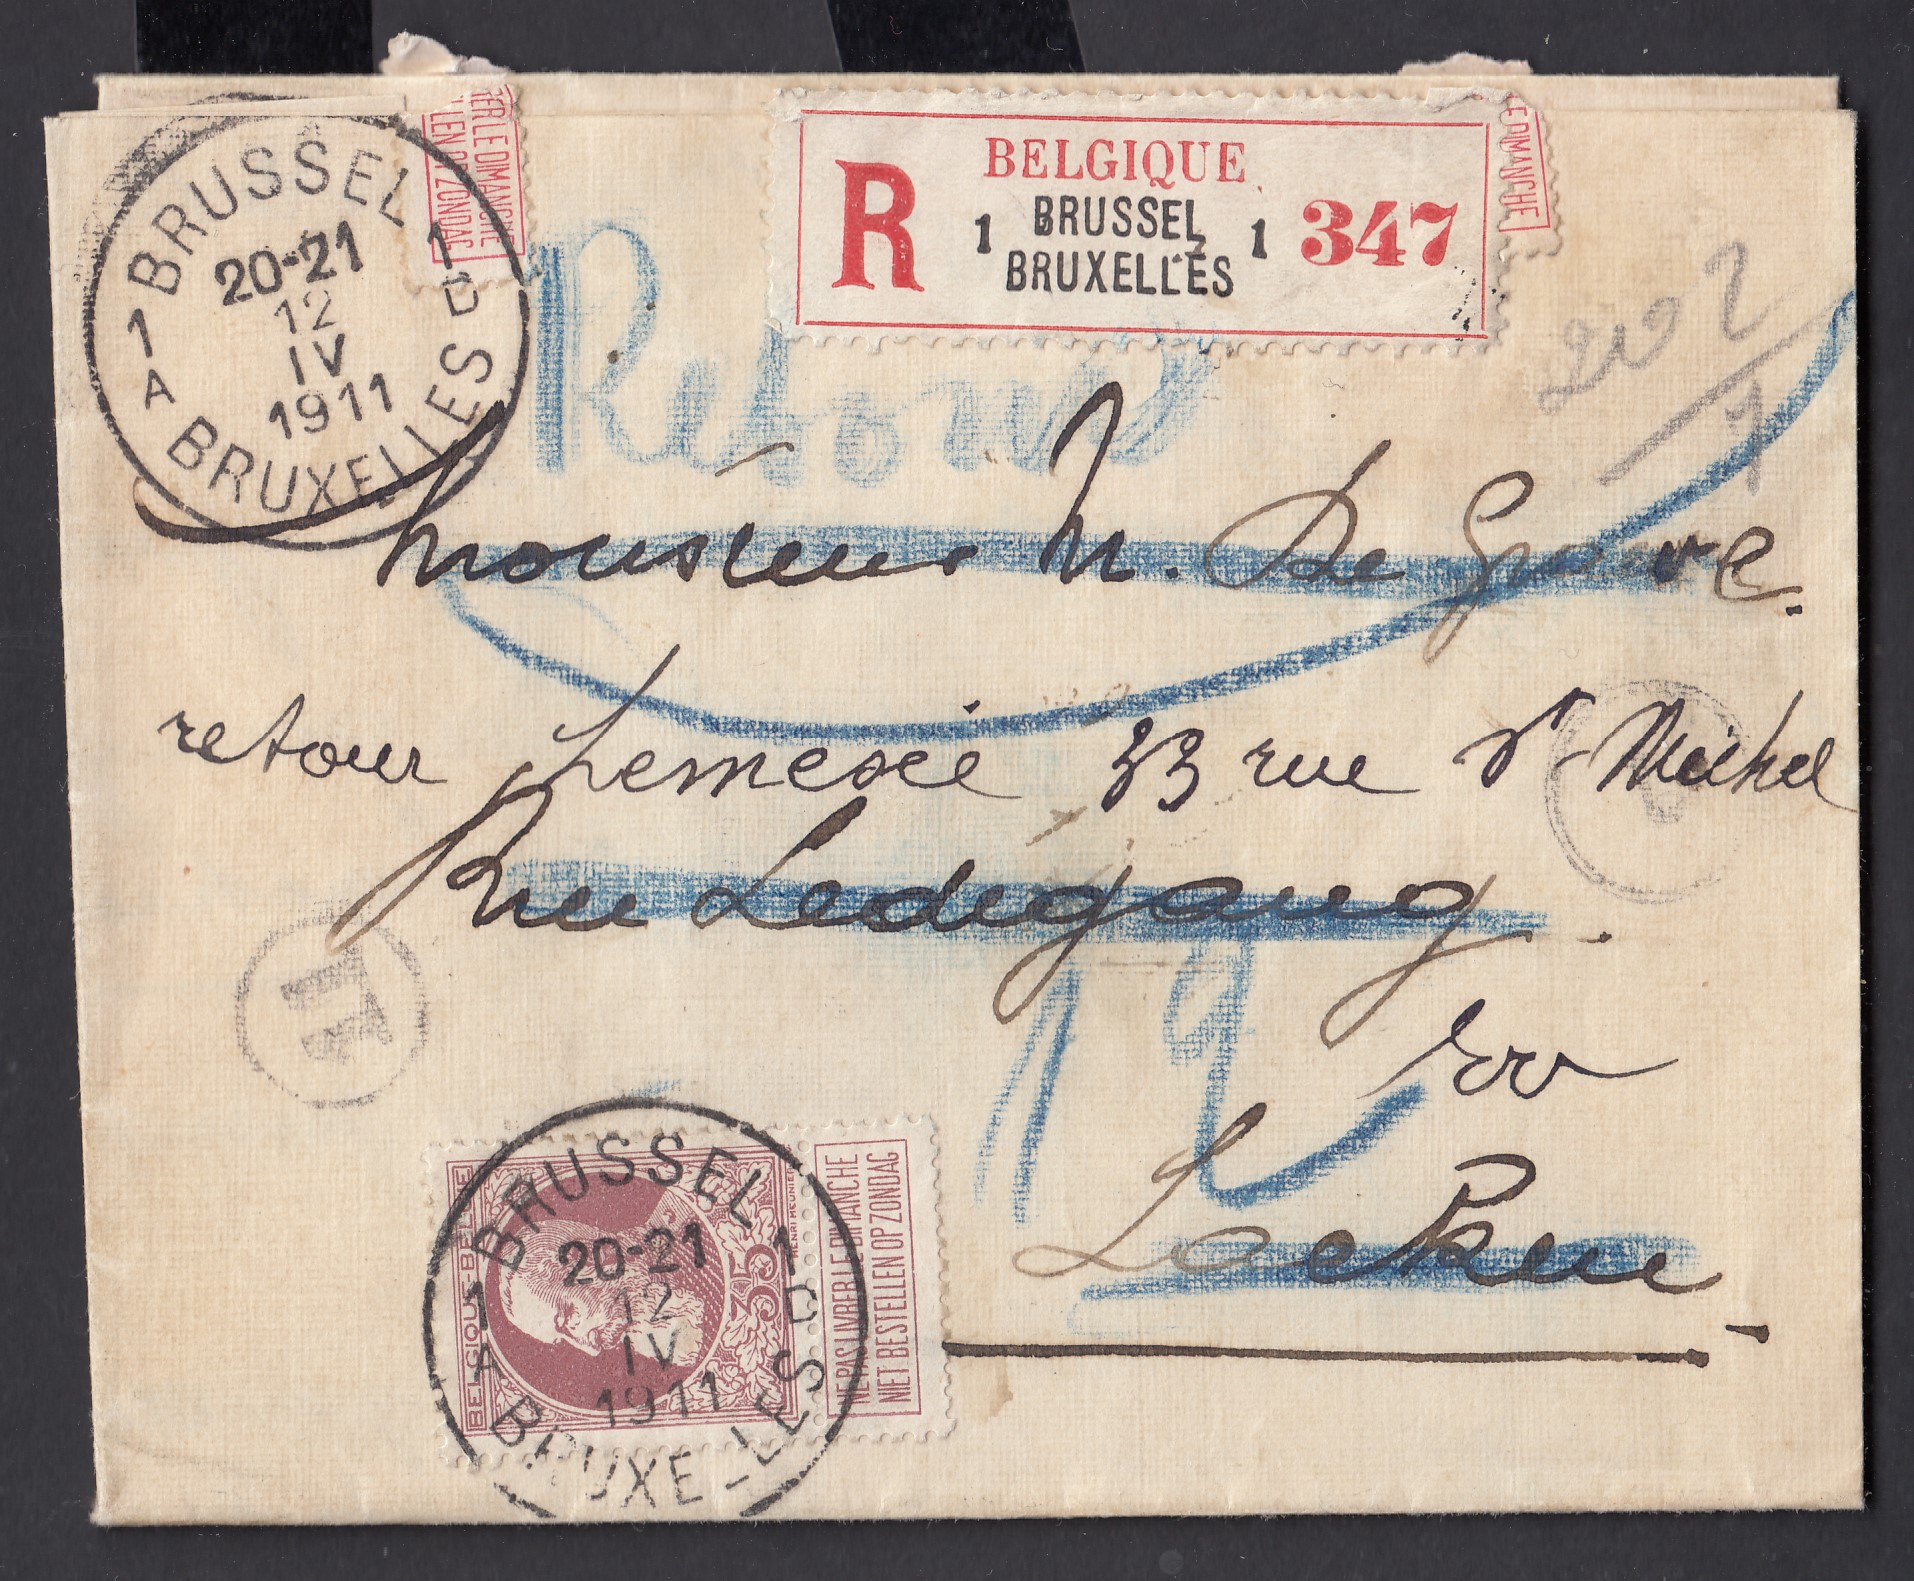 BRUSSEL
20-21
12
IV
1911
1 A 1 D
BRUXELLES
RER LE DIMANCHE
LEN OP ZONDAG
R BELGIQUE
1 BRUSSEL 1 347
BRUXELLES
LE DIMANCHE
Retour
Monsieur N. De
retour 33 rue St Michel
Rue Ledegang
Laeken
BRUSSEL
20-21
12
IV
1911
1 A 1 D
BRUXELLES
BELGIQUE-BELGIË
35
HENRI MEUNIER
NE PAS LIVRER LE DIMANCHE
NIET BESTELLEN OP ZONDAG